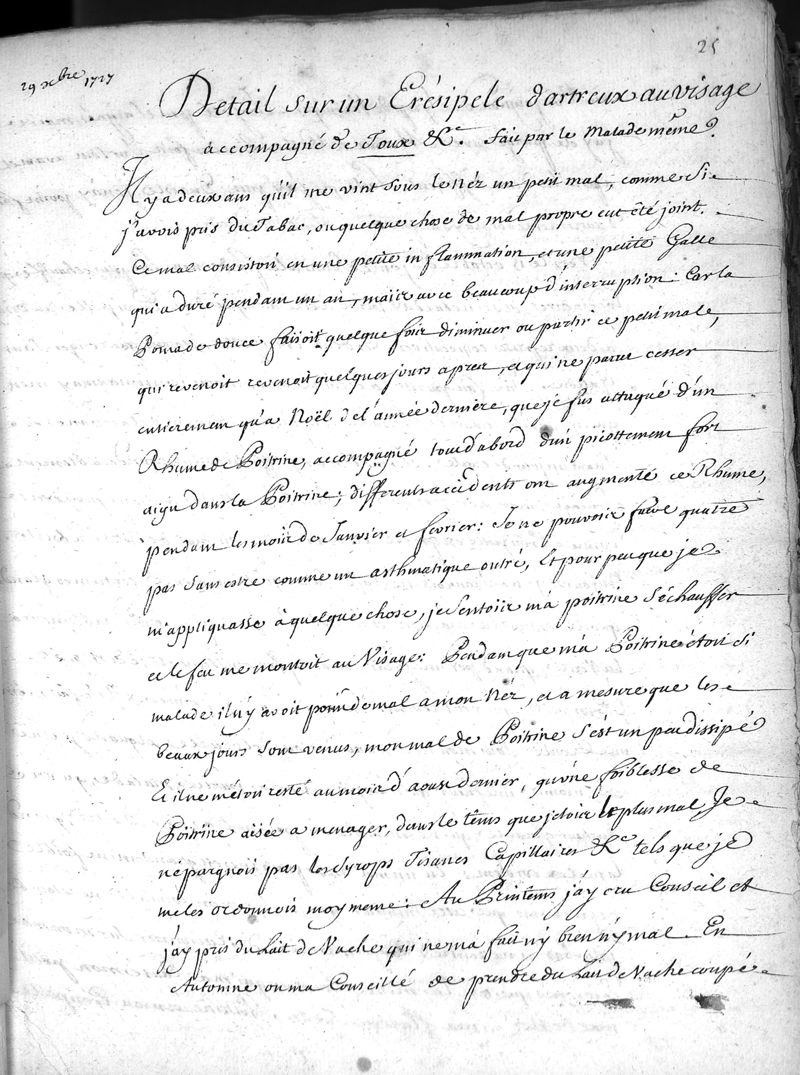 25
29 xbre 1727
Detail sur un Erésipele dartreux au visage
accompagné de Toux &c. fait par le Malade même.
Il y a deux ans qu'il me vint sous le néz un petit mal, comme si
j'avois pris du Tabac, ou quelque chose de mal propre eut été joint.
Ce mal consistoit en une petite inflammation, et une petite Galle
qui a duré pendant un an, mais avec beaucoup d'interruption: Car la
Pomade douce faisoit quelque fois diminuer ou partir ce petit male,
qui revenoit revenoit quelques jours apres, et qui ne parut cesser
entierement qu'a Noël de l'année derniere, que je fus attaqué d'un
Rhume de Poitrine, accompagné tout d'abord d'un picottement fort
aigu dans la Poitrine; differents accidents ont augmenté ce Rhume,
pendant les mois de Janvier et fevrier: Je ne pouvois faire quatre
pas sans estre comme un asthmatique outré, Et pour peu que je
m'appliquasse à quelque chose, je sentois ma poitrine s'échauffer
et le feu me montoit au Visage: Pendant que ma Poitrine étoit si
malade il n'y avoit point de mal a mon Néz, et a mesure que les
beaux jours sont venus, mon mal de Poitrine s'est un peu dissipé
Et il ne m'étoit resté au mois d'aoust dernier, qu'une foiblesse de
Poitrine aisée a menager, dans le tems que j'etois le plus mal, Je
n'épargnois pas les Syrops Tisanes Capillaires &c tels que je
me les ordonnois moy meme: Au Printems j'ay cru Conseil et
j'ay pris du Lait de Vache qui ne m'a fait n'y bien n'y mal. En
Automne on m'a Conseillé de prendre du Lait de Vache coupé